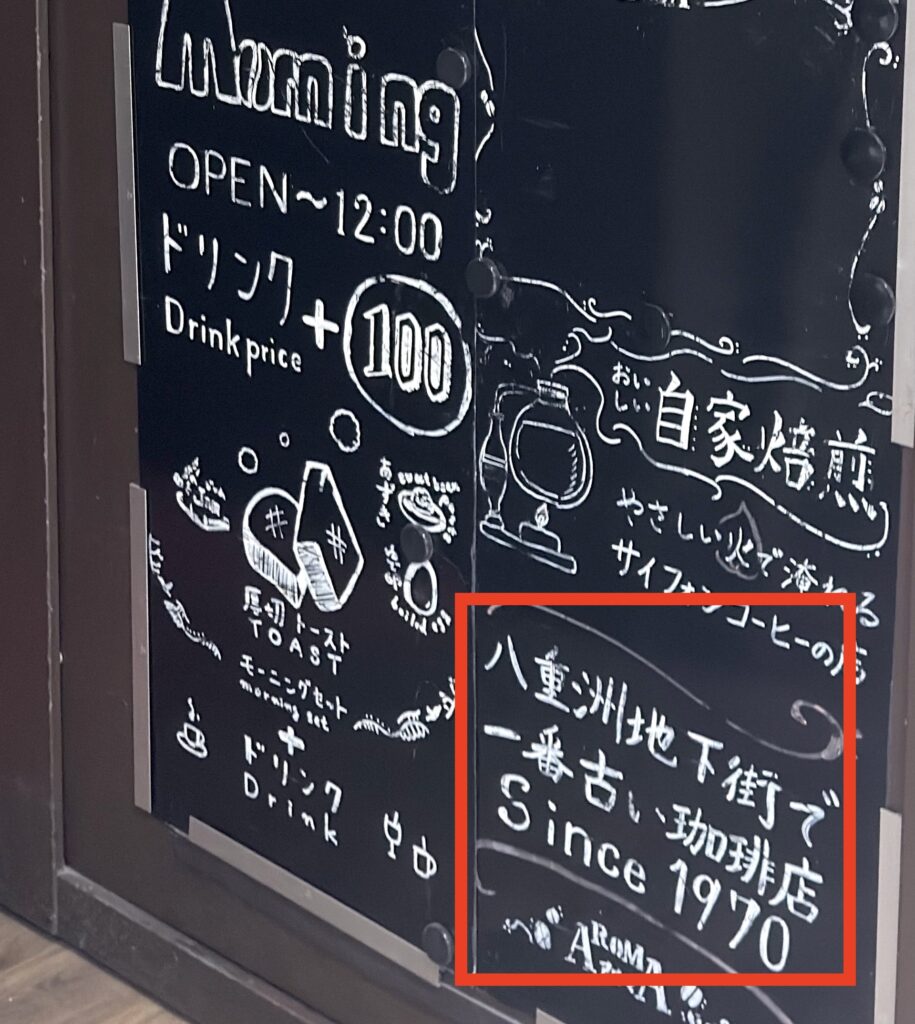 Morning
OPEN～12:00
ドリンク
Drink price
+
100
あずき
sweet bean
厚切トースト
TOAST
モーニングセット
morning set
+
ドリンク
Drink
おいしい
自家焙煎
やさしい火で淹れる
サイフォンコーヒーの店
八重洲地下街で
一番古い珈琲店
Since 1970
AROMA